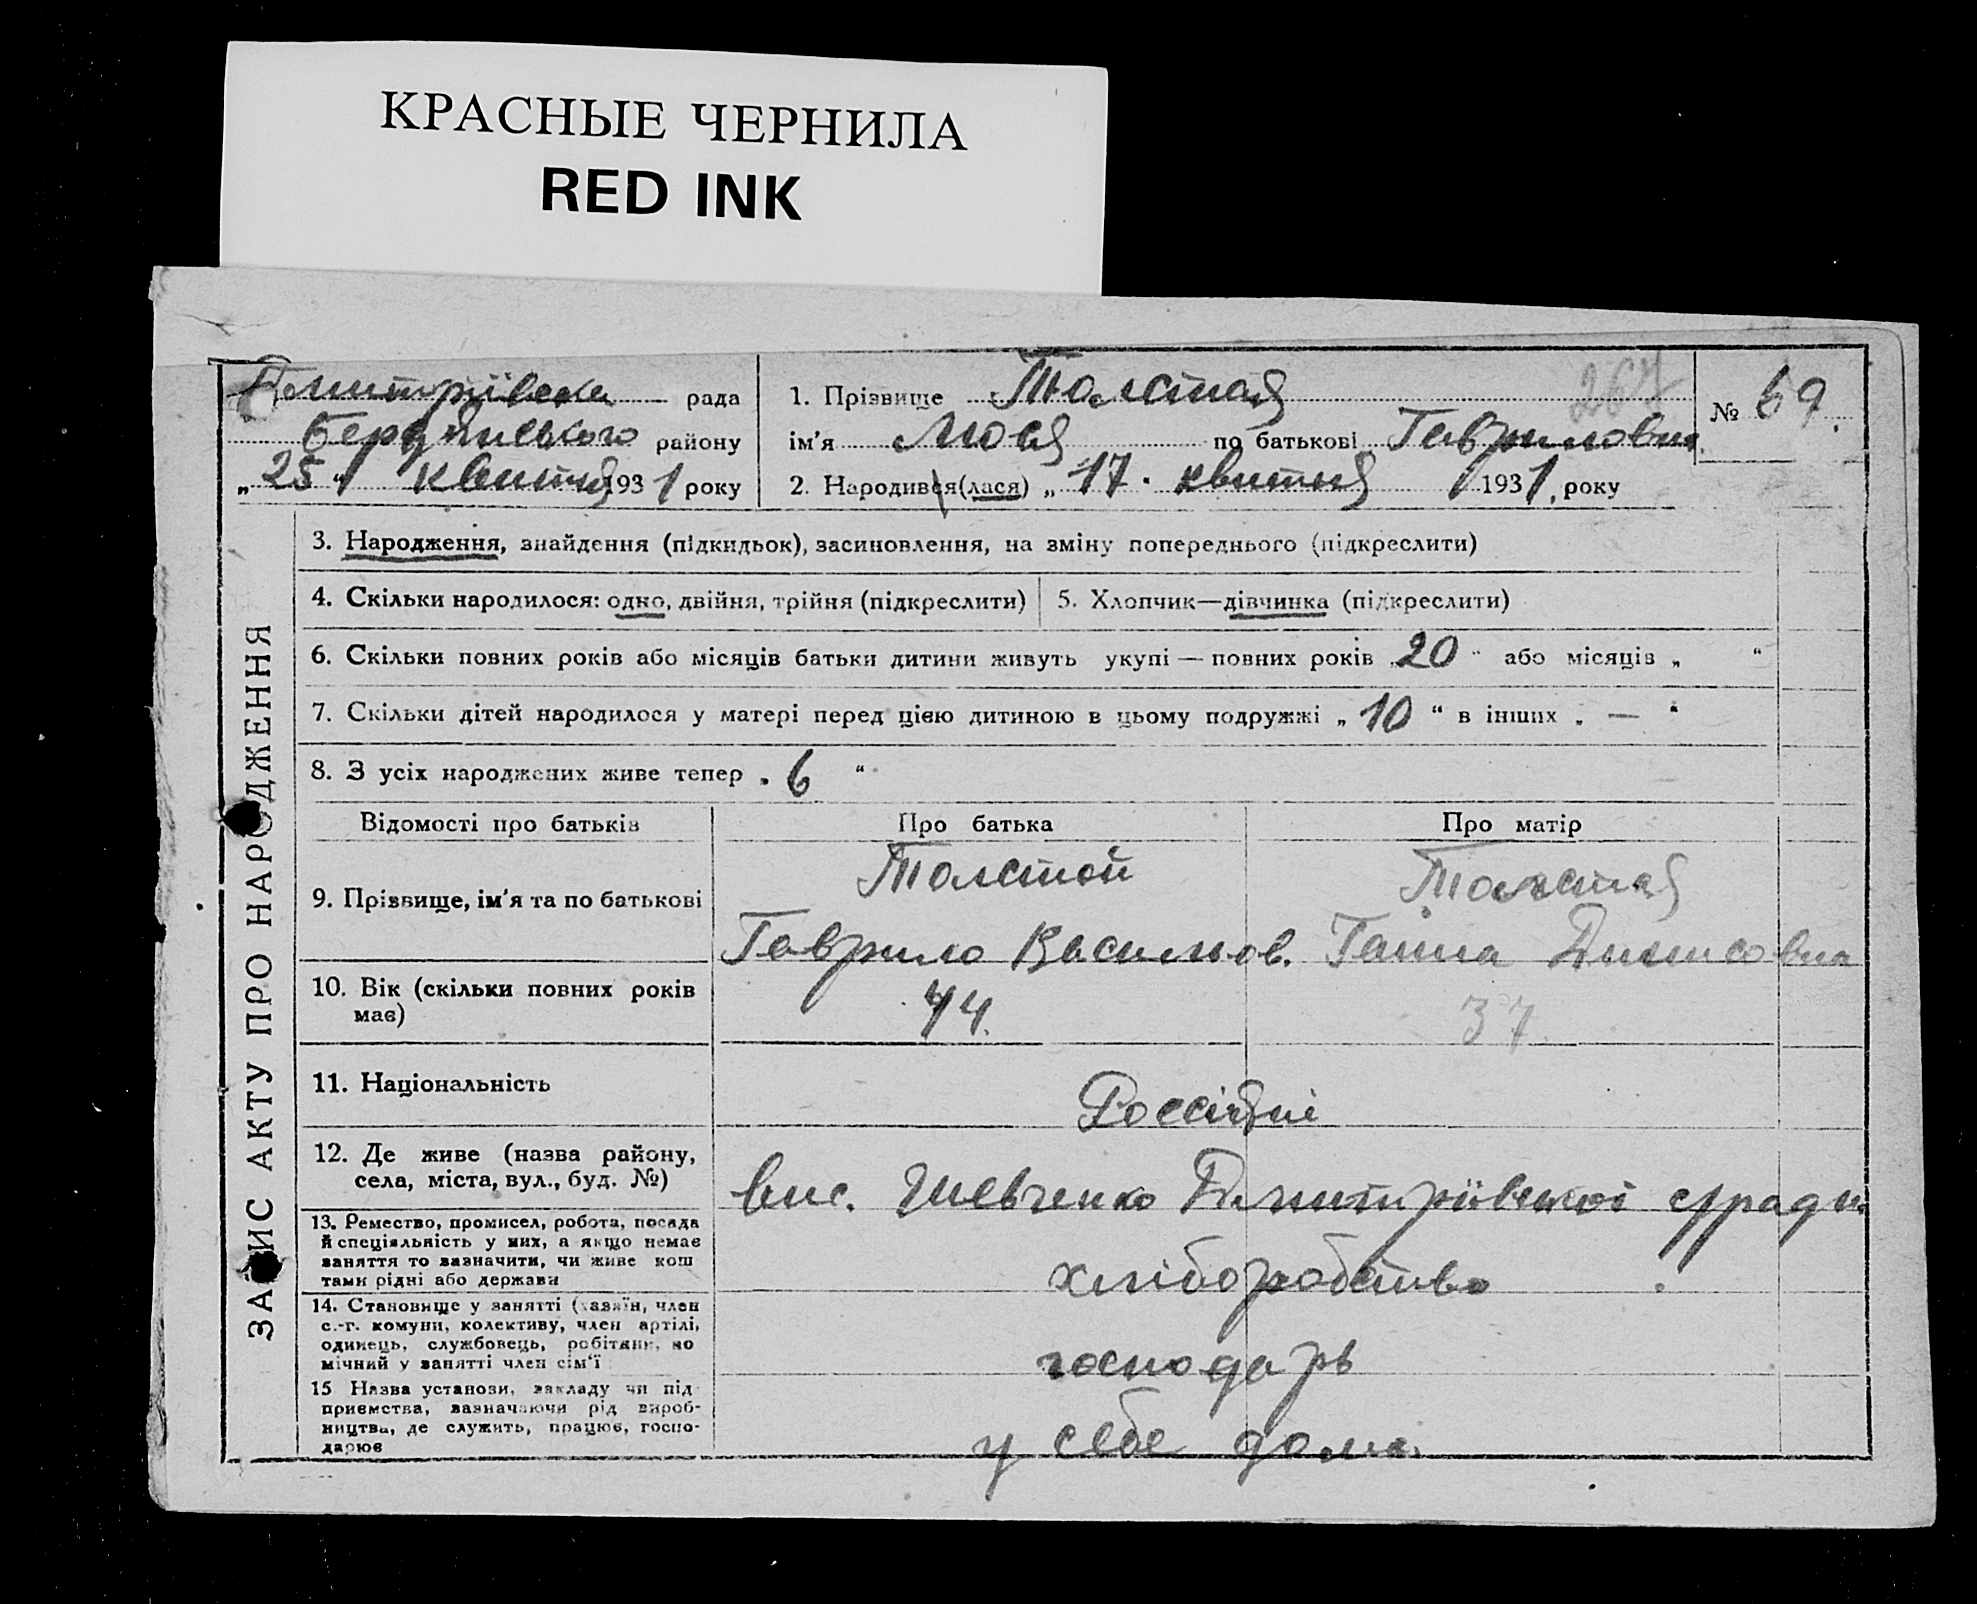 КРАСНЫЕ ЧЕРНИЛА
RED INK
Дмитріївська рада
Бердянського району
„25“ квитня 1931 року
1. Прізвище Толстая
ім'я Любя по батькові Гавриловна
2. Народився(лася) „17. квитня 1931, року
267
№ 69.
ЗАПИС АКТУ ПРО НАРОДЖЕННЯ
3. Народження, знайдення (підкидьок), засиновлення, на зміну попереднього (підкреслити)
4. Скільки народилося: одно, двійня, трійня (підкреслити)
5. Хлопчик—дівчинка (підкреслити)
6. Скільки повних років або місяців батьки дитини живуть укупі — повних років „20“ або місяців „ “
7. Скільки дітей народилося у матері перед цією дитиною в цьому подружжі „10“ в інших „ — “
8. З усіх народжених живе тепер „6“
Відомості про батьків
Про батька
Про матір
9. Прізвище, ім'я та по батькові
Толстой
Гаврило Васильов.
Толстая
Ганна Динисовна
10. Вік (скільки повних років
має)
44.
37.
11. Національність
Россіяні
12. Де живе (назва району,
села, міста, вул., буд. №)
вис. Шевченко Дмитріївської с/ради
13. Ремество, промисел, робота, посада
й спеціяльність у них, а якщо немає
заняття то зазначити, чи живе кош
тами рідні або держави
хліборобство
14. Становище у занятті (хазяїн, член
с.-г. комуни, колективу, член артілі,
одинець, службовець, робітник, по
мічний у занятті член сім'ї
господарь
15 Назва установи, закладу чи під
приємства, зазначаючи рід вироб-
ництва, де служить, працює, госпо-
дарює
у себе дома.